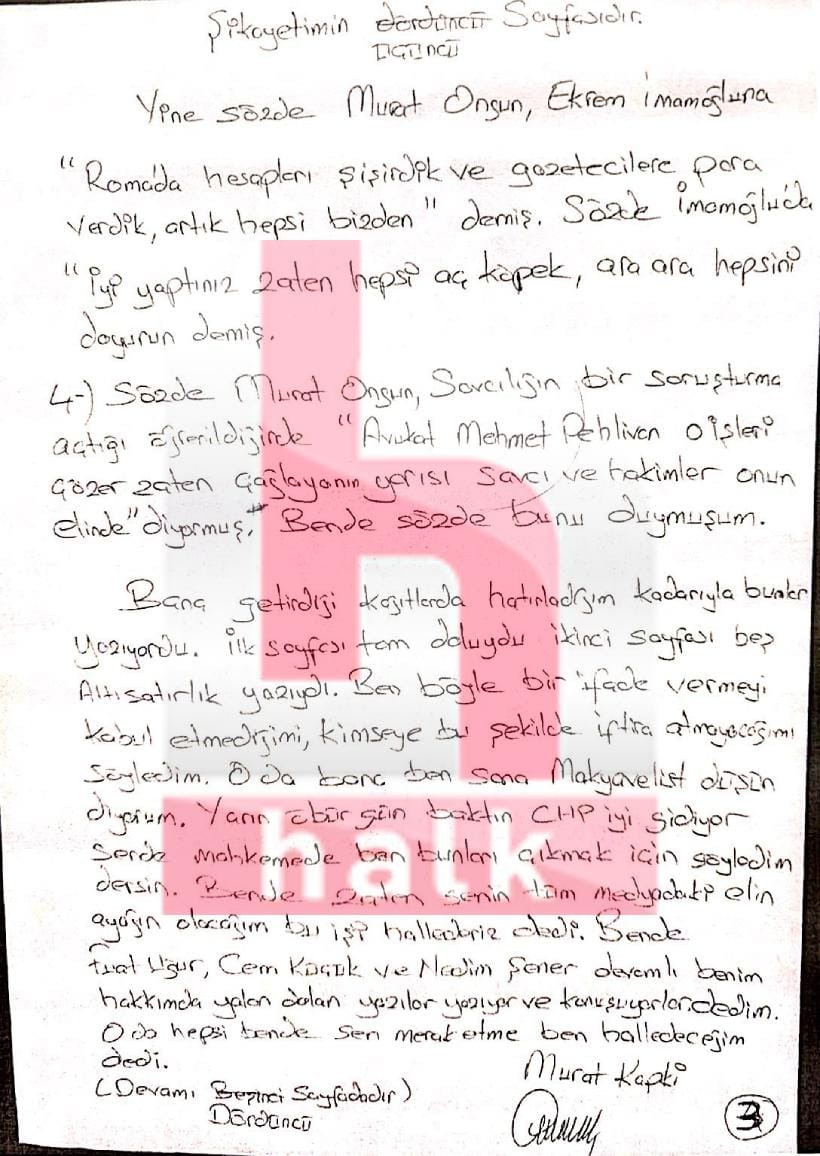 Şikayetimin dördüncü Sayfasıdır.
üçüncü
Yine sözde Murat Ongun, Ekrem İmamoğluna
"Roma'da hesapları şişirdik ve gazetecilere para
verdik, artık hepsi bizden" demiş. Sözde İmamoğlu'da
"İyi yaptınız zaten hepsi aç köpek, ara ara hepsini
doyurun demiş.
4-) Sözde Murat Ongun, Savcılığın bir soruşturma
açtığı öğrenildiğinde "Avukat Mehmet Pehlivan o işleri
çözer zaten Çağlayanın yarısı savcı ve hakimler onun
elinde" diyormuş. Bende sözde bunu duymuşum.
Bana getirdiği kağıtlarda hatırladığım kadarıyla bunlar
yazıyordu. İlk sayfası tam doluydu ikinci sayfası beş
Altı satırlık yazıydı. Ben böyle bir ifade vermeyi
kabul etmediğimi, kimseye bu şekilde iftira atmayacağımı
söyledim. O da bana ben sana Makyavelist düşün
diyorum. Yarın öbür gün baktın CHP iyi gidiyor
Sende mahkemede ben bunları çıkmak için söyledim
dersin. Bende zaten senin tüm medyadaki elin
ayağın olacağım bu işi hallederiz dedi. Bende
Fuat Uğur, Cem Küçük ve Nedim Şener devamlı benim
hakkımda yalan dolan yazılar yazıyor ve konuşuyorlar dedim.
O da hepsi bende sen merak etme ben halledeceğim
dedi.
Murat Kapki
(Devamı Beşinci Sayfadadır)
Dördüncü
3
halk